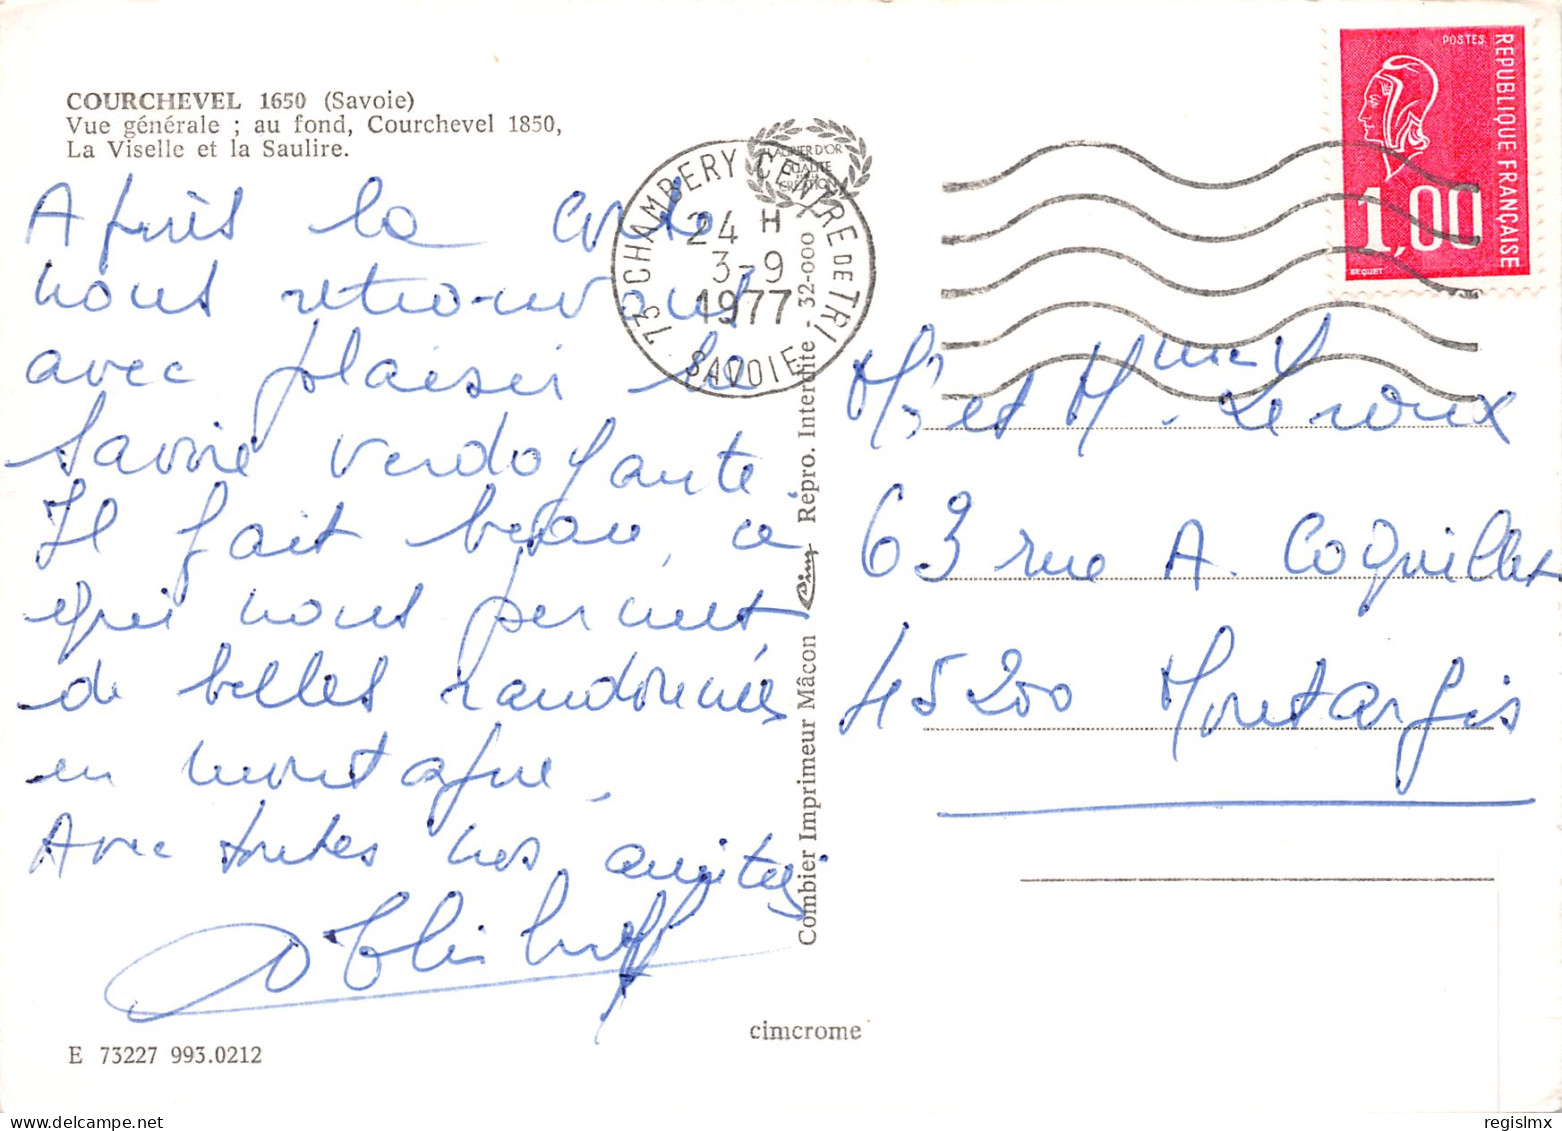 COURCHEVEL 1650 (Savoie)
Vue générale ; au fond, Courchevel 1850,
La Viselle et la Saulire.
Après la
nous retrouvons
avec plaisir la
Savoie verdoyante.
Il fait beau, ce
qui nous permet
de belles randonnées
en montagne.
Avec toutes nos amitiés
E 73227 993.0212
cimcrome
Combier Imprimeur Mâcon Cim Repro. Interdite - 32-000
LAURIER D'OR
QUALITE
CREATION
73 CHAMBERY CENTRE DE TRI
24 H
3-9
1977
SAVOIE
POSTES
REPUBLIQUE FRANÇAISE
1,00
BEQUET
Mr et Mme Leroux
63 rue A. Coquillet
45200 Montargis
regislmx